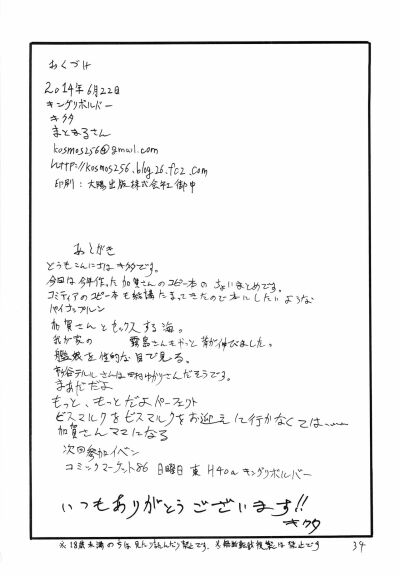 おくづけ
2014年6月22日
キングリボルバー
キクタ
まとまるさん
kosmos256@gmail.com
http://kosmos256.blog26.fc2.com
印刷：大陽出版株式会社御中
あとがき
どうもこんにちはキクタです。
今回は今年作った加賀さんのコピー本のちょいまとめです。
コミティアのコピー本も結構たまってきたので本にしたいような
パイナップルン
加賀さんとセックスする海。
我が家の 霧島さんもやっと芽が伸びました。
艦娘を性的な目で見る。
さんは田村ゆかりさんだそうです。
まあだだよ
もっと、もっとだよパーフェクト
ビスマルクをビスマルクをお迎えに行かなくては……
加賀さんママになる
次回参加イベン
コミックマーケット86 日曜日 東 H40a キングリボルバー
いつもありがとうございます!!
キクタ
※18歳未満の方は見たり読んだり禁止です。※無断転載複製は禁止です
34